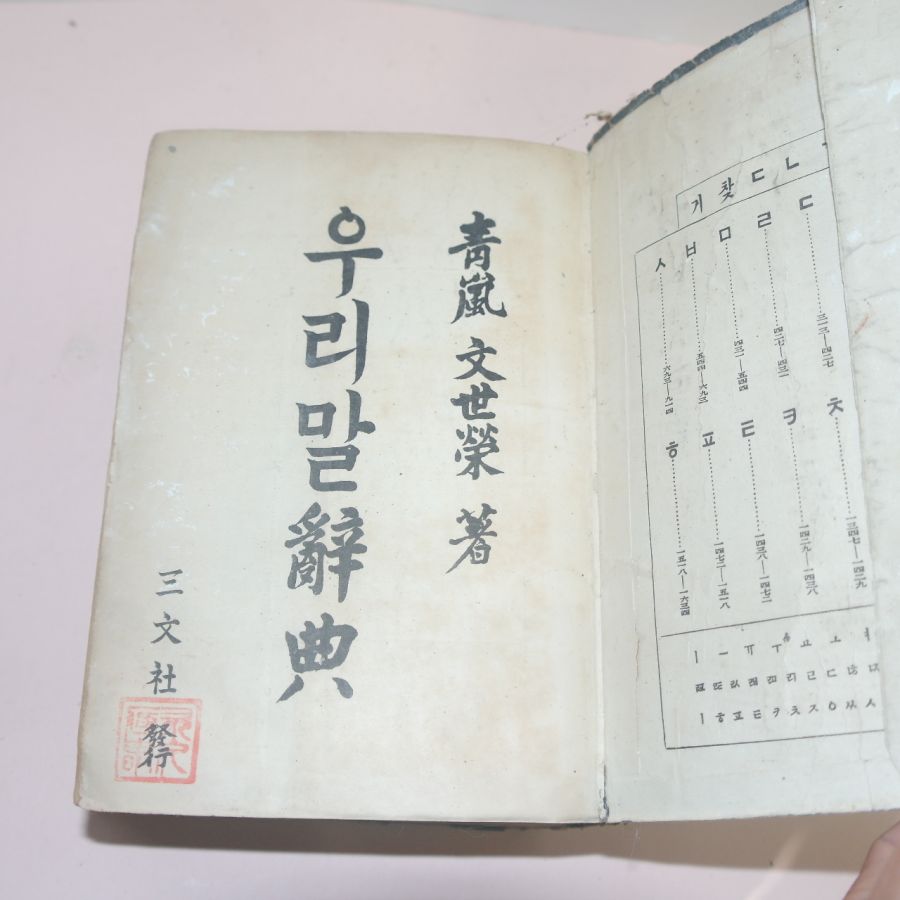 靑嵐 文世榮 著
우리말辭典
三文社 發行
ㄴㄷ찾기
ㄷ……三一三—四二七
ㄹ……四二七—四三一
ㅁ……四三一—五四四
ㅂ……五四四—六九三
ㅅ……六九三—九一四
ㅊ……一三四七—一四二九
ㅋ……一四二九—一四三八
ㅌ……一四三八—一四七二
ㅍ……一四七二—一五一八
ㅎ……一五一八—一六三四
ㅗ ㅛ ㅜ ㅠ ㅡ ㅣ
ㅅ ㅆ ㅇ ㅈ ㅊ ㅋ ㅌ ㅍ ㅎ ㅣ